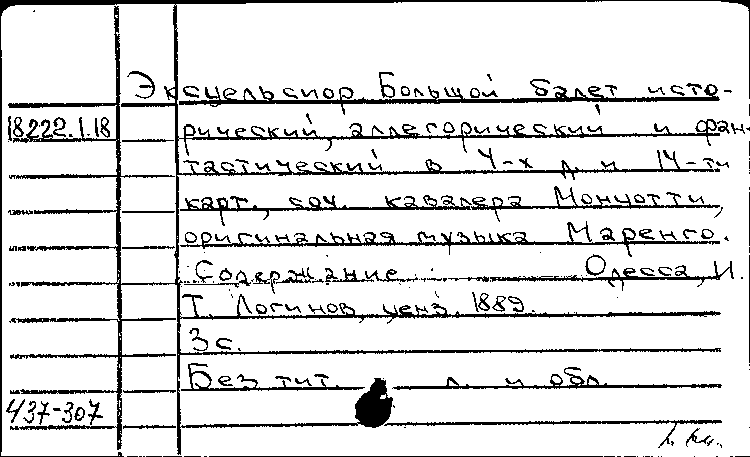 Эксцельсиор. Большой балет исто-
18222.1.18 рический, аллегорический и фан-
тастический в 4-х д. и 14-ти
карт., соч. кавалера Монцотти,
оригинальная музыка Маренго.
Содержание. Одесса, И.
Т. Логинов, ценз. 1889.
3 с.
Без тит. л. и обл.
437-307